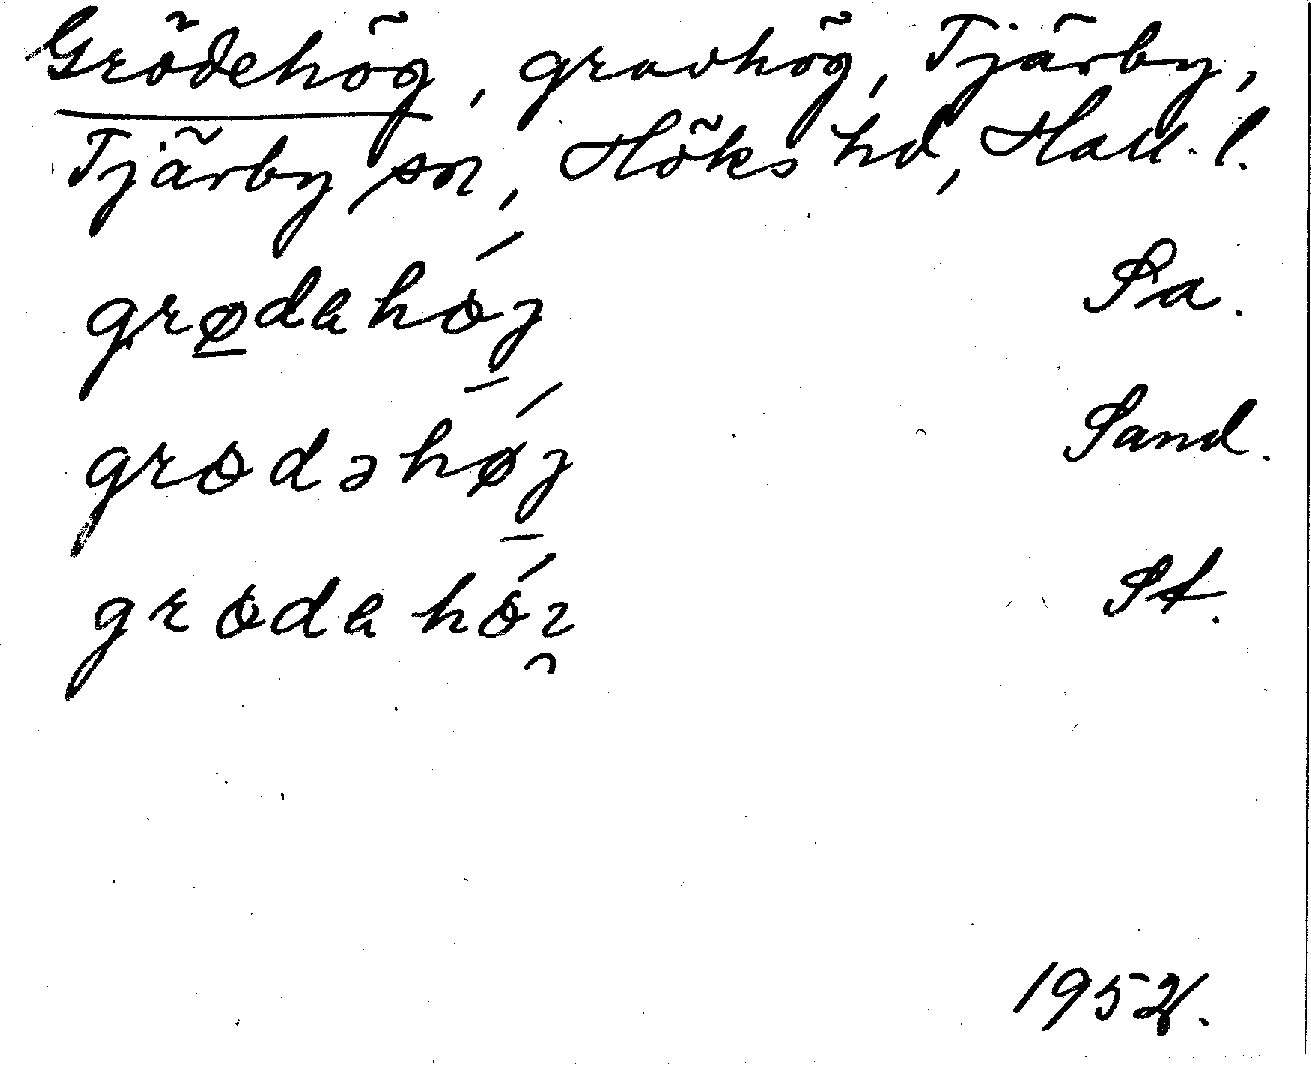 Grödehög, gravhög, Tjärby,
Tjärby sn, Höks hd, Hall. l.
grødahój Sa.
grodəhǿj Sand.
grodahóz St.
1952.